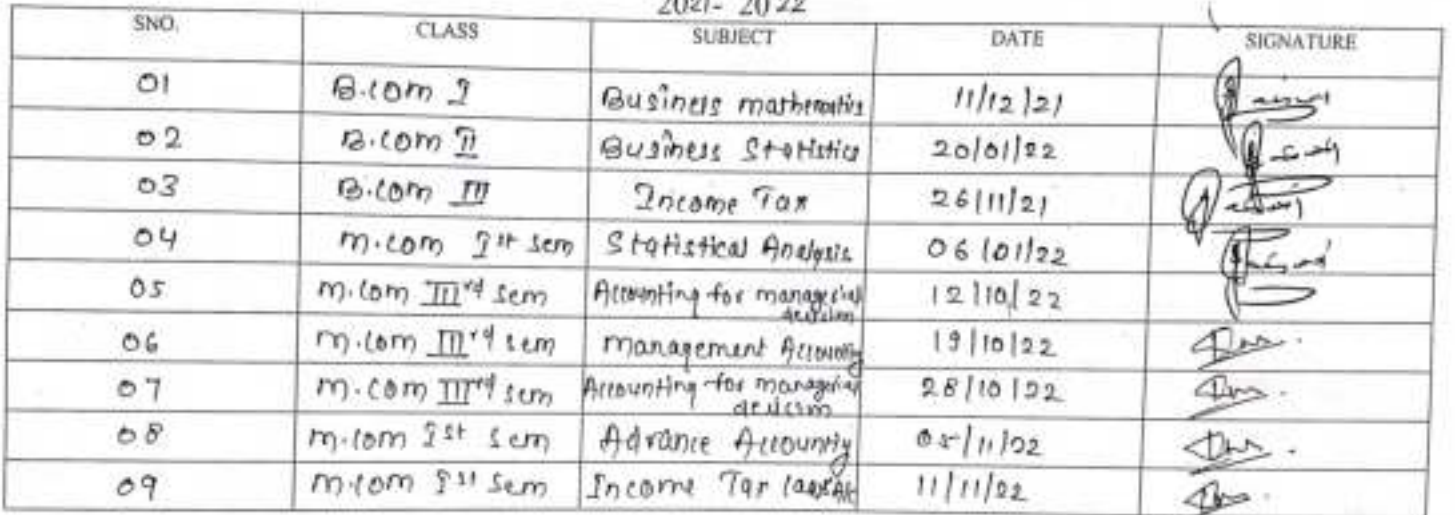 2021- 2022
SNO. CLASS SUBJECT DATE SIGNATURE
01 B.com I Business mathematics 11/12/21
02 B.com II Business Statistics 20/01/22
03 B.com III Income Tax 26/11/21
04 m.com Ist sem Statistical Analysis 06/01/22
05 m.com IIIrd sem Accounting for managerial decision 12/10/22
06 m.com IIIrd sem management Accounting 19/10/22
07 m.com IIIrd sem Accounting for managerial decision 28/10/22
08 m.com Ist sem Advance Accounting 05/11/22
09 m.com Ist sem Income Tax 11/11/22